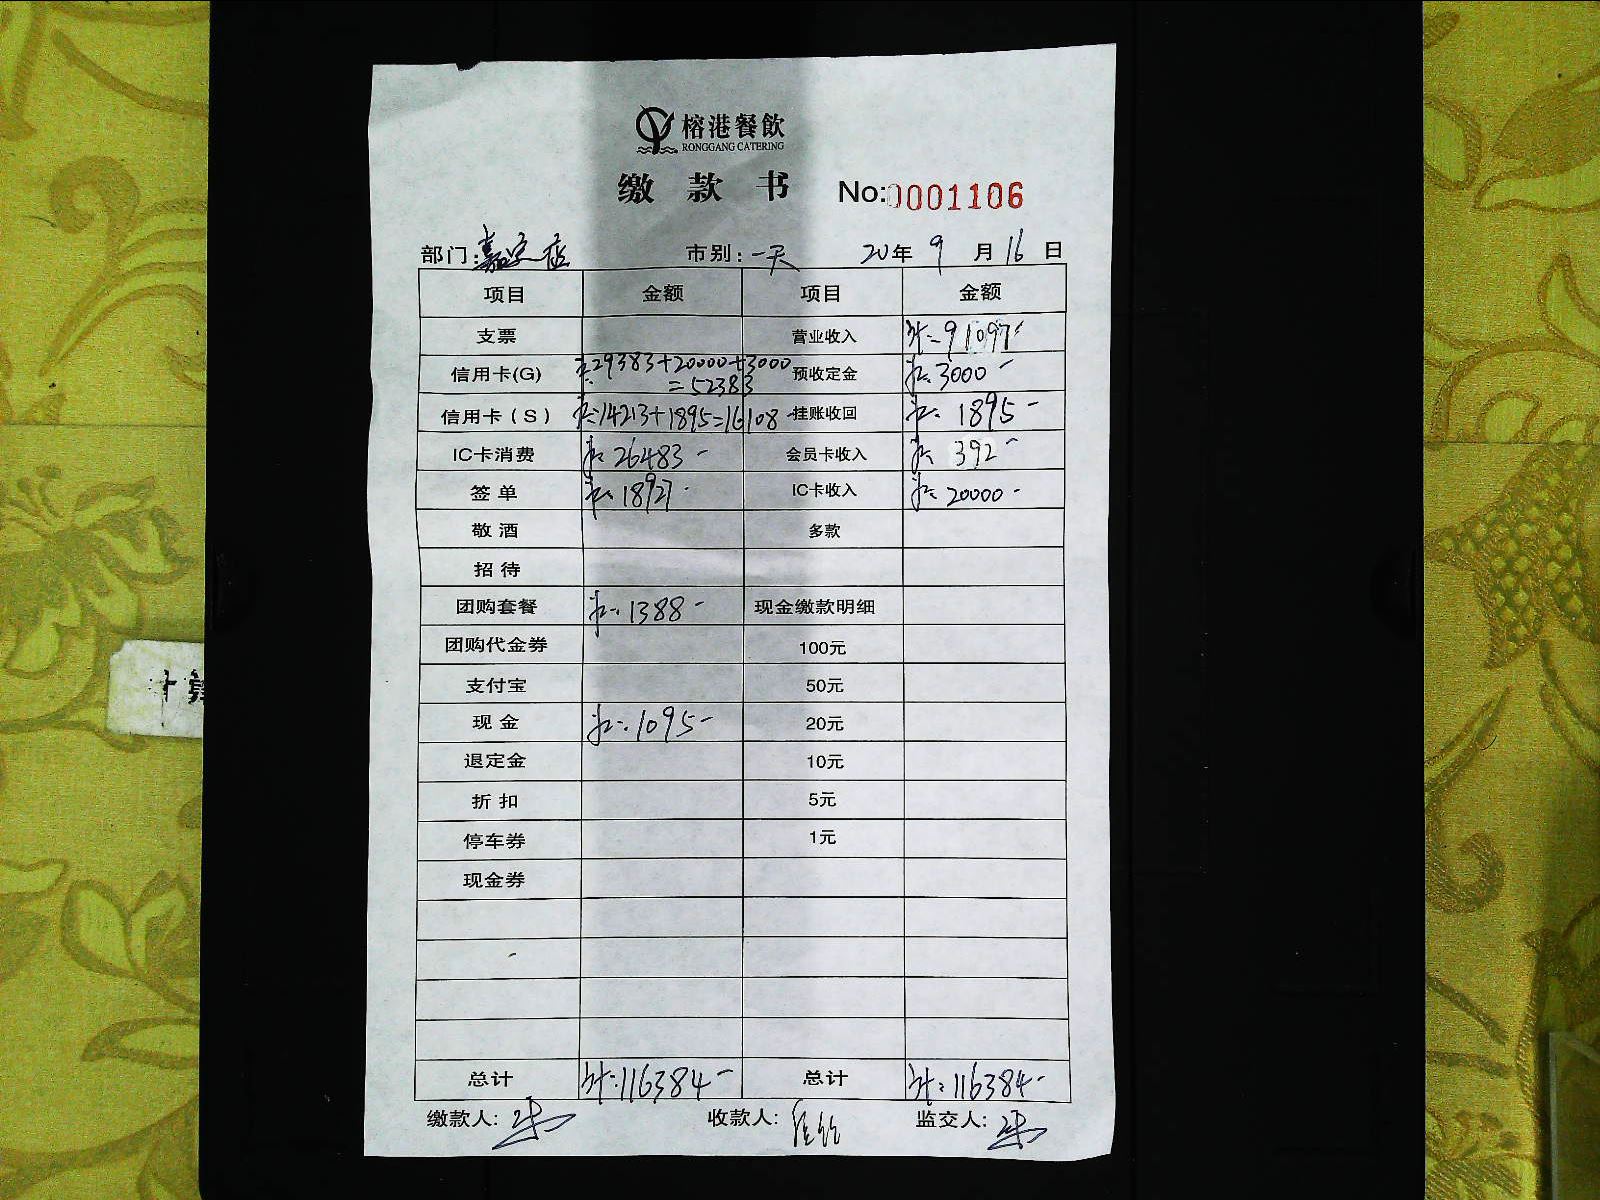 榕港餐飲
RONGGANG CATERING
缴款书 No:0001106
部门: 嘉定店 市别: 一天 20年 9月 16日
项目 金额 项目 金额
支票 营业收入 91097
信用卡(G) 29383+20000+3000=52383 预收定金 3000
信用卡(S) 14213+1895=16108 挂账收回 1895
IC卡消费 26483 会员卡收入 392
签单 18927 IC卡收入 20000
敬酒 多款
招待
团购套餐 1388 现金缴款明细
团购代金券 100元
支付宝 50元
现金 1095 20元
退定金 10元
折扣 5元
停车券 1元
现金券
总计 116384 总计 116384
缴款人: 收款人: 监交人: